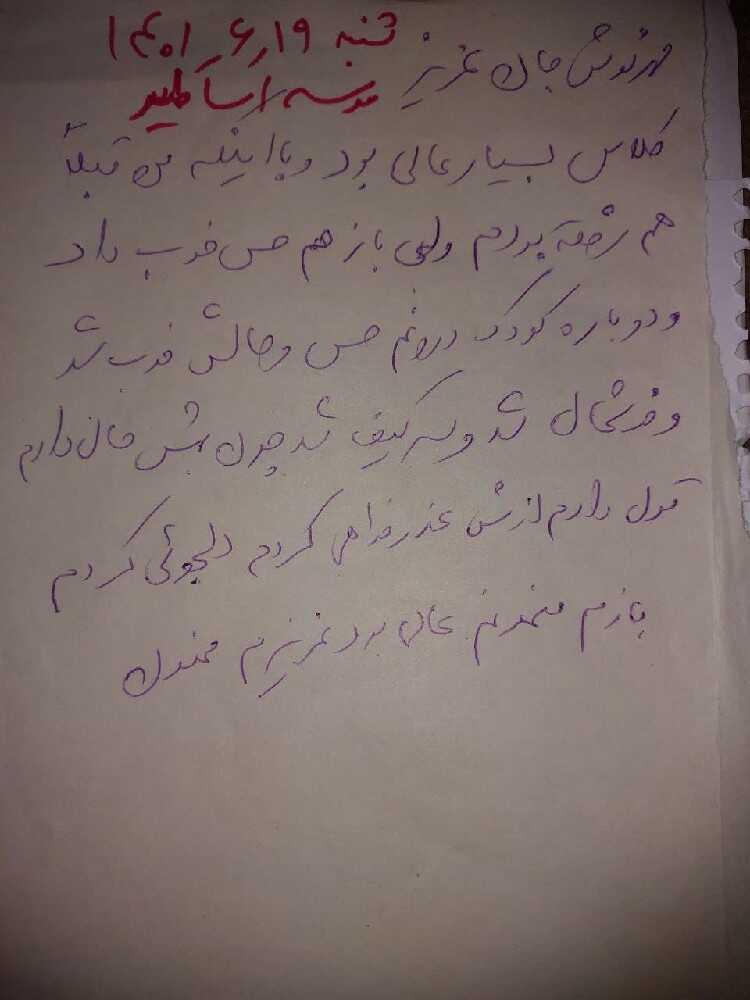 شنبه ۱۹ر۶ـ۱۴۰۱
مهرنوش جان عزیز
کلاس بسیار عالی بود و با اینکه من قبلاً
هم رفته بودم ولی باز هم حس خوب داد
و دوباره کودک درونم حس و حالش خوب شد
و خوشحال شد و سر کیف شد چون بهش حال دارم
قول دارم ازش عذرخواهی کردم دلجوئی کردم
بازم ممنونم عالی بود عزیزم ممنون